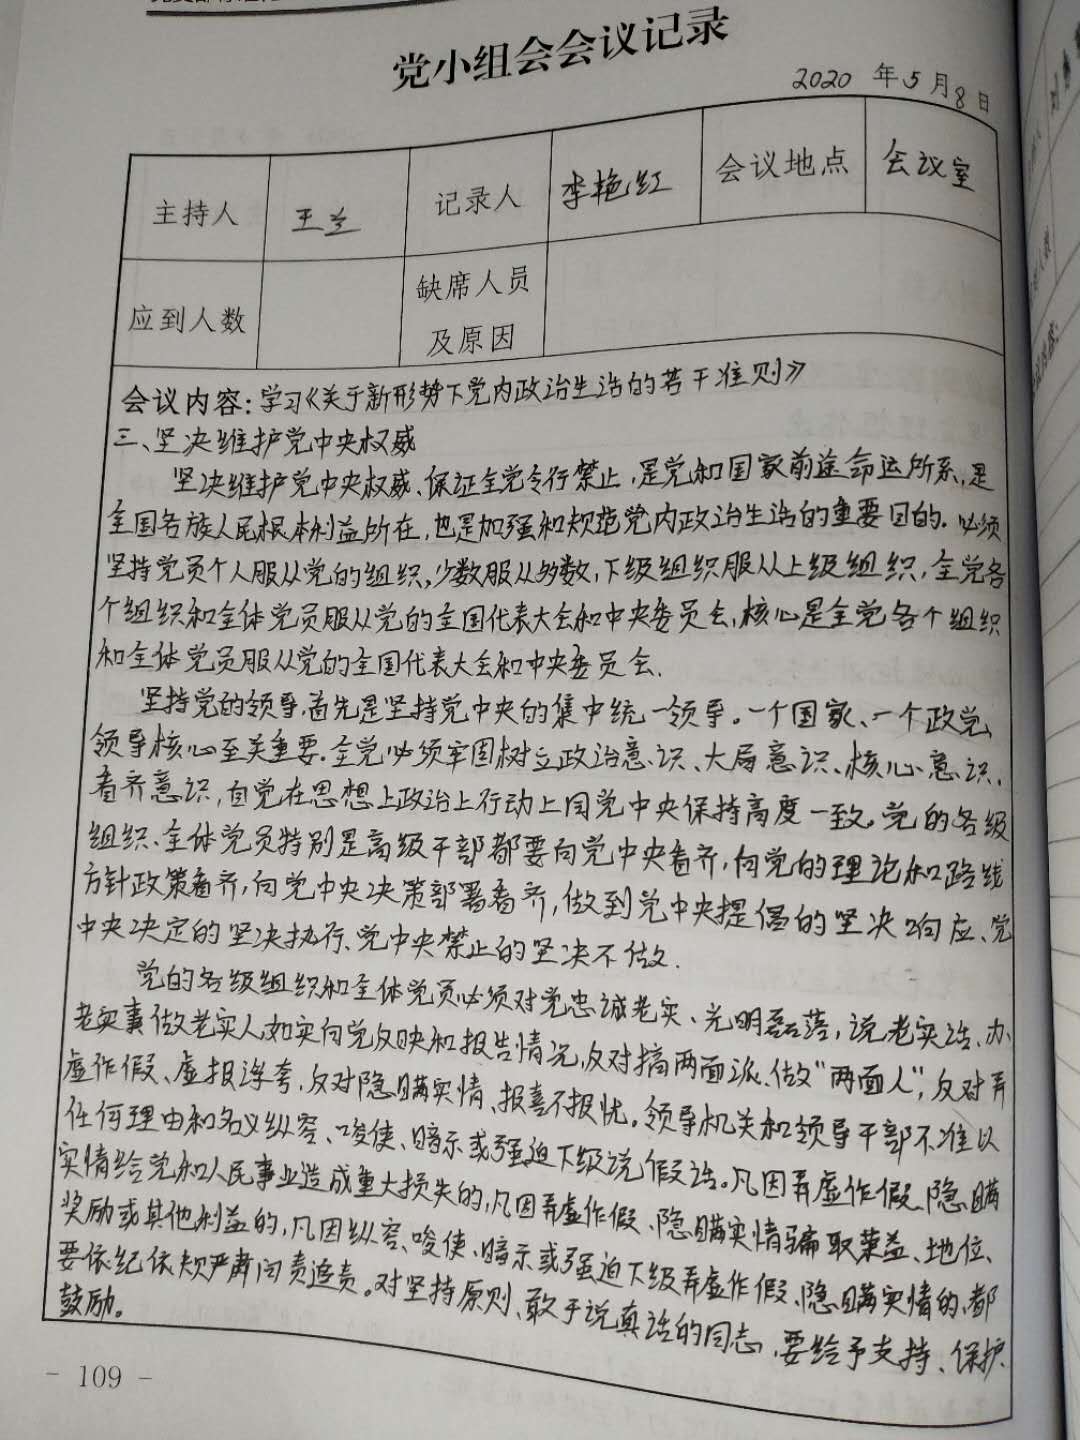 党小组会会议记录
2020 年 5 月 8 日
主持人 王兰 记录人 李艳红 会议地点 会议室
应到人数 缺席人员及原因
会议内容：学习《关于新形势下党内政治生活的若干准则》
三、坚决维护党中央权威
坚决维护党中央权威、保证全党令行禁止，是党和国家前途命运所系，是
全国各族人民根本利益所在，也是加强和规范党内政治生活的重要目的。必须
坚持党员个人服从党的组织，少数服从多数，下级组织服从上级组织，全党各
个组织和全体党员服从党的全国代表大会和中央委员会，核心是全党各个组织
和全体党员服从党的全国代表大会和中央委员会.
坚持党的领导，首先是坚持党中央的集中统一领导。一个国家、一个政党、
领导核心至关重要.全党必须牢固树立政治意识、大局意识、核心意识、
看齐意识，自觉在思想上政治上行动上同党中央保持高度一致。党的各级
组织、全体党员特别是高级干部都要向党中央看齐，向党的理论和路线
方针政策看齐，向党中央决策部署看齐，做到党中央提倡的坚决响应、党
中央决定的坚决执行、党中央禁止的坚决不做.
党的各级组织和全体党员必须对党忠诚老实、光明磊落，说老实话、办
老实事做老实人，如实向党反映和报告情况，反对搞两面派、做“两面人”，反对弄
虚作假、虚报浮夸，反对隐瞒实情、报喜不报忧。领导机关和领导干部不准以
任何理由和名义纵容、唆使、暗示或强迫下级说假话。凡因弄虚作假、隐瞒
实情给党和人民事业造成重大损失的，凡因弄虚作假、隐瞒实情骗取荣益、地位、
奖励或其他利益的，凡因纵容、唆使、暗示或强迫下级弄虚作假、隐瞒实情的，都
要依纪依规严肃问责追责。对坚持原则、敢于说真话的同志，要给予支持、保护、
鼓励。
- 109 -